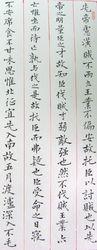 先帝慮漢賊不兩立王業不偏安故託臣以討賊也以先
帝之明量臣之才故知臣伐賊才弱敵強也然不伐賊王業亦
亡惟坐而待亡孰與伐之是故託臣而弗疑也臣受命之日寢
不安席食不甘味思惟北征宜先入南故五月渡瀘深入不毛